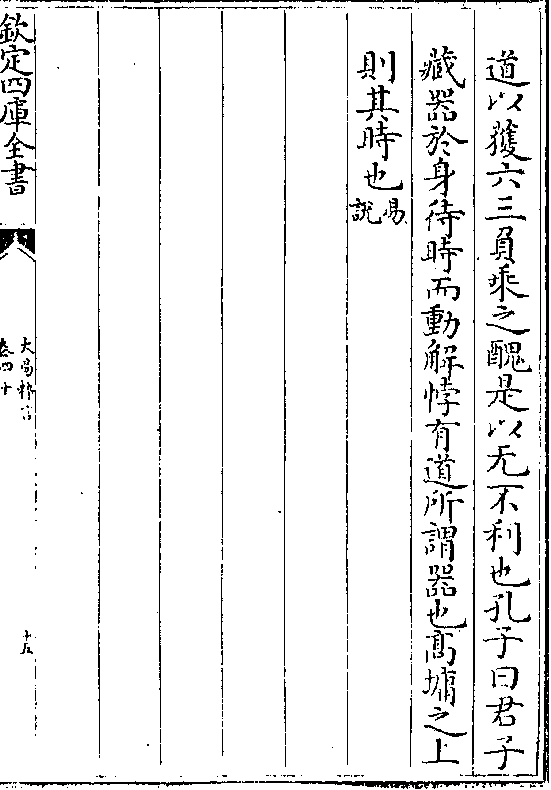 道以獲六三負乘之醜是以无不利也孔子曰君子
藏器於身待時而動解悖有道所謂器也髙墉之上
則其時也易說
欽定四庫全書
大易粹言
卷四十
十五